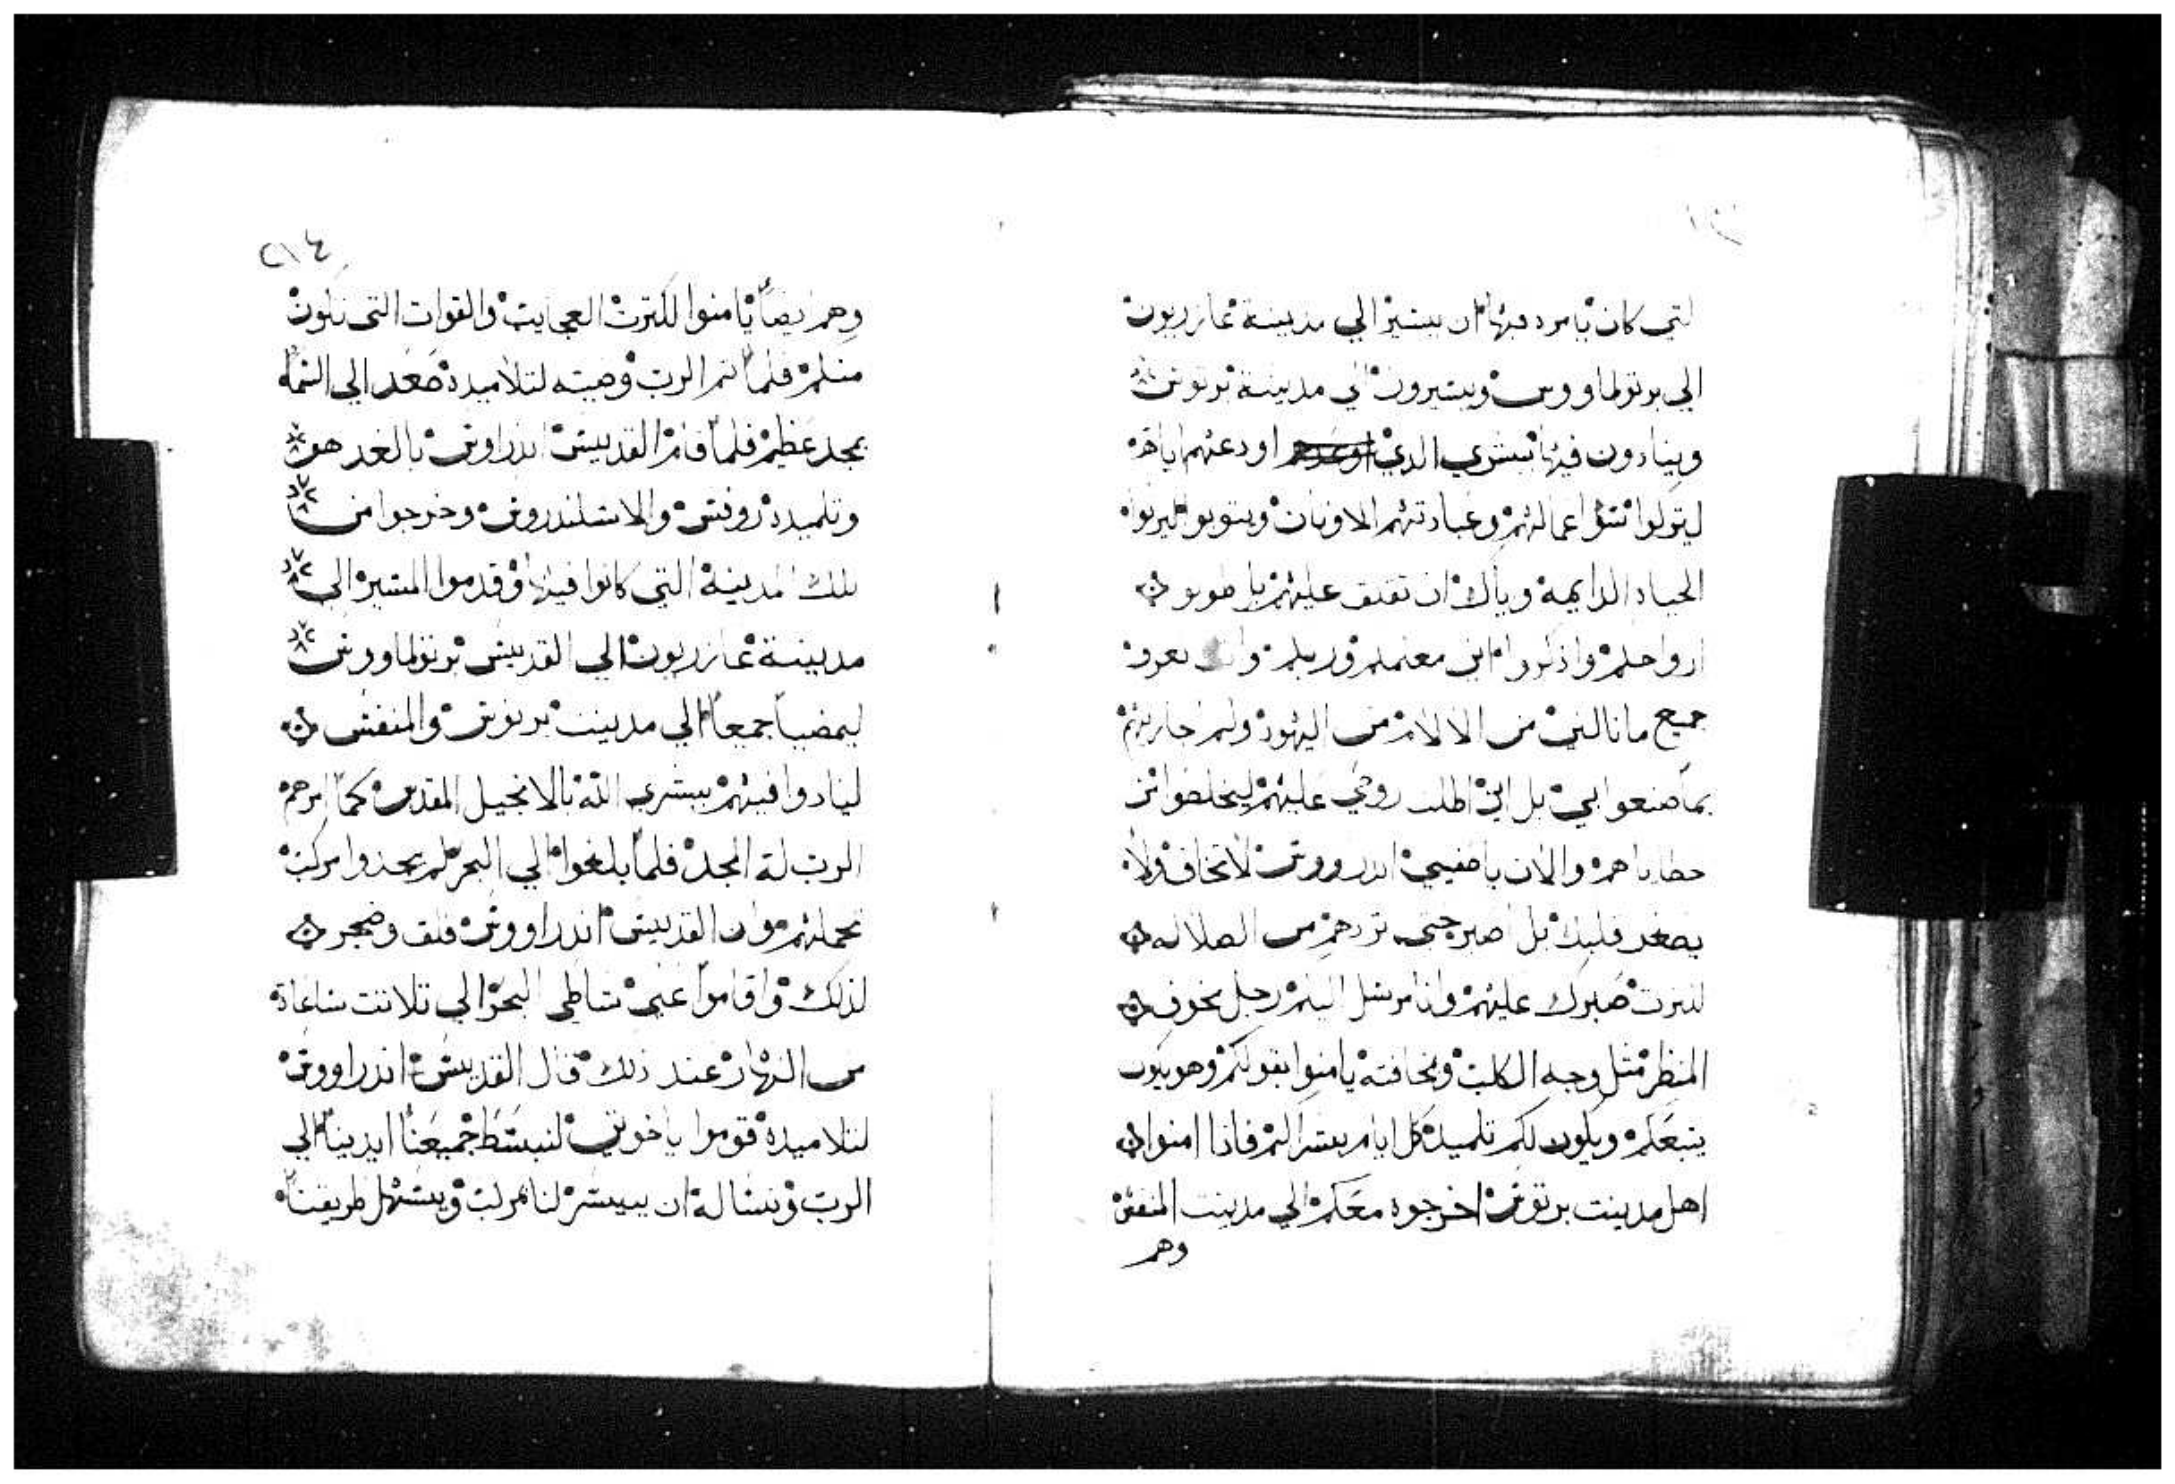 التي كان يامره فيها ان يسير الي مدينة غازريون
الي برتولماووس ويسيرون الي مدينة برتوس
وينادون فيها بشري الذي اودعتهم اياه
ليتركوا نتن اعمالهم وعبادتهم الاوثان ويتوبوا ليرتوا
الحياه الدايمه وياك ان تقلق عليهم بل طوبو
ارواحكم واذكروا اني معلمكم وربكم وانك تعرف
جميع ما نالني من الالام من اليهود ولم جازيتهم
بما صنعوا بي بل اني اطلت روحي عليهم ليخلصوا من
خطاياهم والان ياصفيي اندرووس لا تخاف ولا
يصغر قلبك بل اصبر حتي تردهم من الضلاله
لتبرت صبرك عليهم وانا مرسل اليكم رجل مخوف
المنظر مثل وجه الكلب ومخافته يامنوا بقولكم وهو يكون
يتبعكم ويكون لكم تلميد كل ايام بشراكم فاذا امنوا
اهل مدينت برتوس اخرجوه معكم الي مدينت المنفس
وهم
٢١٤
وهم ايضاً يامنوا لكترت العجايب والقوات التي تكون
منكم فلما اتم الرب وصيته لتلاميده صعد الي السماه
بمجد عظيم فلما قام القديس اندراوس بالغد هو
وتلميده روفس والاسكندروس وخرجوا من
تلك المدينة التي كانوا فيها وقدموا المسير الي
مدينة غازريون الي القديس برتولماووس
ليمضيا جمعاً الي مدينت برتوس والمنفس
ليناد وا فيهم ببشري الله بالانجيل المقدس كما امرهم
الرب له المجد فلما بلغوا الي البحر لم يجدوا مركب
تحملهم وان القديس اندراووس قلق وضجر
لذلك واقاموا علي شاطي البحر الي تلاتت ساعاة
من النهار عند ذلك قال القديس اندراووس
لتلاميده قوموا ياخوتي لنبسط جميعنا ايدينا الي
الرب ونساله ان ييسر لنا مركب ويسهل طريقنا